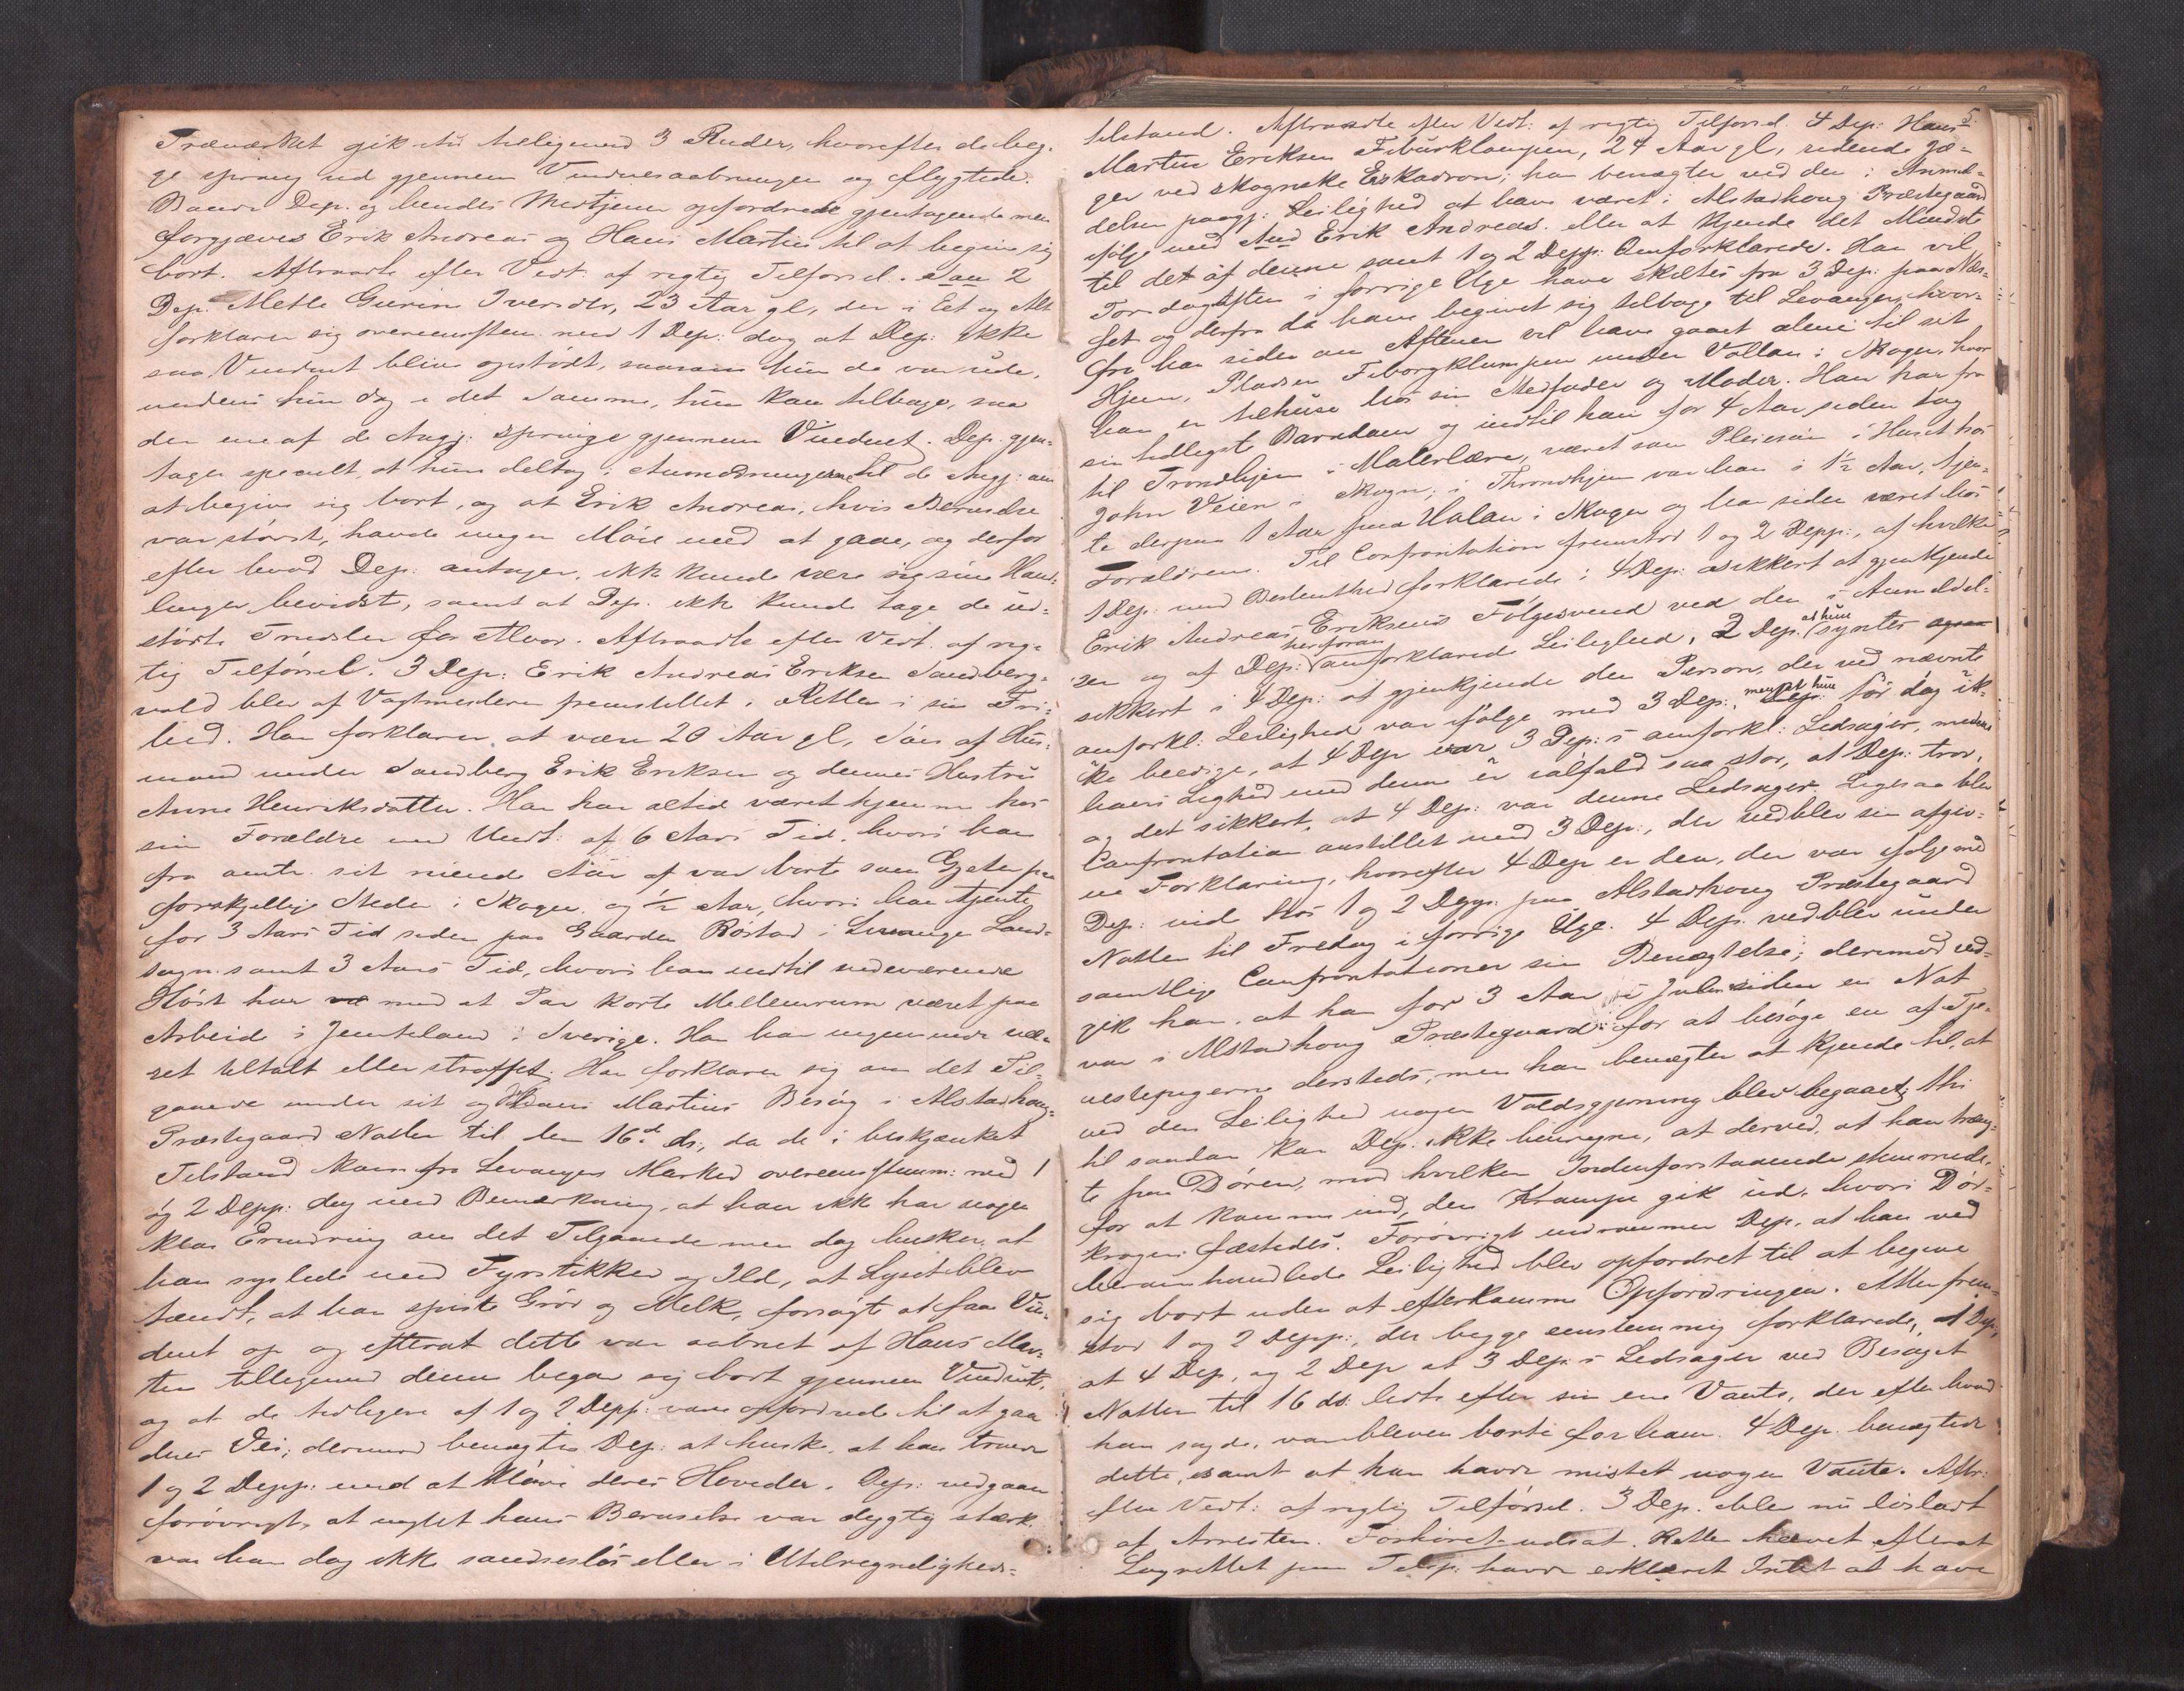 Træværket gik itu tilligemed 3 Ruder, hvorefter de beg-
ge sprang ud gjennem Vinduesaabningen og flygtede.
Baade Dep. og hendes Medtjener opfordrede gjentagende men
forgjæves Erik Andreas og Hans Martin til at begive sig
bort. Aftraadte efter Vedt: af rigtig Tilførsel. som 2
Dep: Mette Gurine Iversdtr, 23 Aar gl, der i Eet og Alt
forklarer sig overensstem. med 1 Dep: dog at Dep: ikke
saa Vinduet blive opstødt, saasom hun da var ude,
medens hun dog i det Samme, hun kom tilbage, saa
den ene af de Angj: springe gjennem Vinduet. Dep. gjen-
tager specielt, at hun deltog i Anmodningerne til de Angj: om
at begive sig bort, og at Erik Andreas, hvis Beruselse
var størst, havde megen Møie med at gaae, og derfor
efter hvad Dep: antager, ikke kunde være sig sine Hand-
linger bevidst, samt at Dep. ikke kunde tage de ud-
stødte Trudsler for Alvor. Aftraadte efter Vedt. af rig-
tig Tilførsel. 3 Dep: Erik Andreas Eriksen Sandberg-
vald blev af Vagtmesteren fremstillet i Retten i sin Fri-
hed. Han forklarer at være 20 Aar gl, Søn af Hus-
mand under Sandberg Erik Eriksen og dennes Hustru
Anne Henriksdatter. Han har altid været hjemme hos
sine Forældre med Undt: af 6 Aars Tid, hvori han
fra omtr. sit niende Aar af var borte som Gjeter paa
forskjellige Steder i Skogn, og ½ Aar, hvori han tjente
for 3 Aars Tid siden paa Gaarden Røstad i Levanger Land-
sogn samt 3 Aars Tid, hvori han indtil nuværende
Høst har med et Par korte Mellemrum været paa
Arbeide i Jemteland i Sverige. Han har ingensinde væ-
ret tiltalt eller straffet. Han forklarer sig om det Til-
gaaede under sit og Hans Martins Besøg i Alstadhoug
Præstegaard Natten til den 16de ds., da de i beskjænket
Tilstand kom fra Levangers Marked overensstemm: med 1
og 2 Depp: dog med Bemærkning, at han ikke har nogen
klar Erindring om det Tilgaaede men dog husker, at
han syslede med Fyrstikker og Ild, at Lyset blev
tændt, at han spiste Grød og Melk, forsøgte at faa Vin-
duet op og efterat dette var aabnet af Hans Mar-
tin tilligemed denne begav sig bort gjennem Vinduet,
og at de tidligere af 1 og 2 Depp: vare opfordrede til at gaa
deres Vei; dermod benægter Dep: at huske, at han truede
1 og 2 Depp: med at kløve deres Hoveder. Dep: vedgaar
forøvrigt, at uagtet hans Beruselse var dygtig stærk
var han dog ikke sandsesløs eller i Utilregneligheds-
5.
tilstand. Aftraadte efter Vedt: af rigtig Tilførsel. 4 Dep: Hans
Martin Eriksen Fiborklumpen, 24 Aar gl, ridende Jæ-
ger ved Skognske Eskadron; han benægter ved den i Anmel-
delsen paagj: Leilighed at have været i Alstadhoug Præstegaard
ifølge med Erik Andreas eller at kjende det Mindste
til det af denne samt 1 og 2 Depp: Omforklarede. Han vil
Torsdag Aften i forrige Uge have skiltes fra 3 Dep: paa Næs-
set og derfra da have begivet sig tilbage til Levanger, hvor-
fra han siden om Aftenen vil have gaaet alene til sit
Hjem, Pladsen Fiborgklumpen under Vollan i Skogn, hvor
han er tilhuse hos sin Stedfader og Moder. Han har fra
sin tidligste Barndom og indtil han for 4 Aar siden tog
til Trondhjem i Malerlære, været som Pleiesøn i Huset hos
John Veien i Skogn; i Throndhjem var han i 1½ Aar, tjen-
te derpaa 1 Aar paa Halan i Skogn og har siden været hos
Forældrene. Til Confrontation fremstod 1 og 2 Depp:, af hvilke
1 Dep: med Bestemthed forklarede i 4 Dep: sikkert at gjenkjende
Erik Andreas Eriksens Følgesvend ved den i Anmeldel-
sen og af Dep: herforan omforklarede Leilighed, 2 Dep: at hun syntes
sikkert i 4 Dep: at gjenkjende den Person, der ved nævnte
omforkl: Leilighed var ifølge med 3 Dep:, men at hun før dog ik-
ke beedige, at 4 Dep var 3 Dep:s omforkl: Ledsager, medens
hans Lighed med denne er ialfald saa stor, at Dep: tror,
og det sikkert, at 4 Dep: var denne Ledsager. Ligesaa blev
Confrontation anstillet med 3 Dep:, der vedblev sin afgiv-
ne Forklaring, hvorefter 4 Dep er den, der var ifølge med
Dep: inde hos 1 og 2 Depp: paa Alstadhoug Præstegaard
Natten til Fredag i forrige Uge. 4 Dep. vedblev under
samtlige Confrontationer sin Benægtelse; dermod ved-
gik han, at han for 3 Aar i Julen siden en Nat
var i Alstadhoug Præstegaard for at besøge en af Tje-
nestepigerne dersteds, men han benægter at kjende til, at
ved den Leilighed nogen Voldsgjerning blev begaaet, thi
til saadan kan Dep: ikke henregne, at derved, at han træng-
te paa Døren, mod hvilken Indenforstaaende stemmede,
for at komme ind, den Krampe gik ud, hvori Dør-
krogen fæstedes. Forøvrigt indrømmer Dep. at han ved
heromhandlede Leilighed blev opfordret til at begive
sig bort uden at efterkomme Opfordringen. Atter frem-
stod 1 og 2 Depp:, der begge eenstemmig forklarede, 1 Dep,
at 4 Dep, og 2 Dep at 3 Dep:s Ledsager ved Besøget
Natten til 16 ds: ledte efter sin ene Vante, der efter hvad
han sagde, var bleven borte for ham. 4 Dep. benægtede
dette, samt at han havde mistet nogen Vante. Aftr:
efter Vedt: af rigtig Tilførsel. 3 Dep. blev nu løsladt
af Arresten. Forhøret udsat. Retten hævet efterat
Lagrettet paa Tilsp: havde erklæret Intet at have